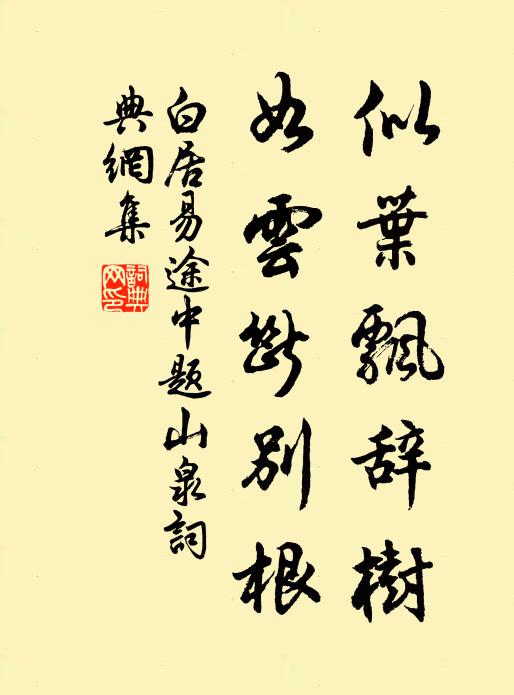 似葉飄辞樹
如雲斷別根
白居易途中題山泉詞
典網集
詞典
网印